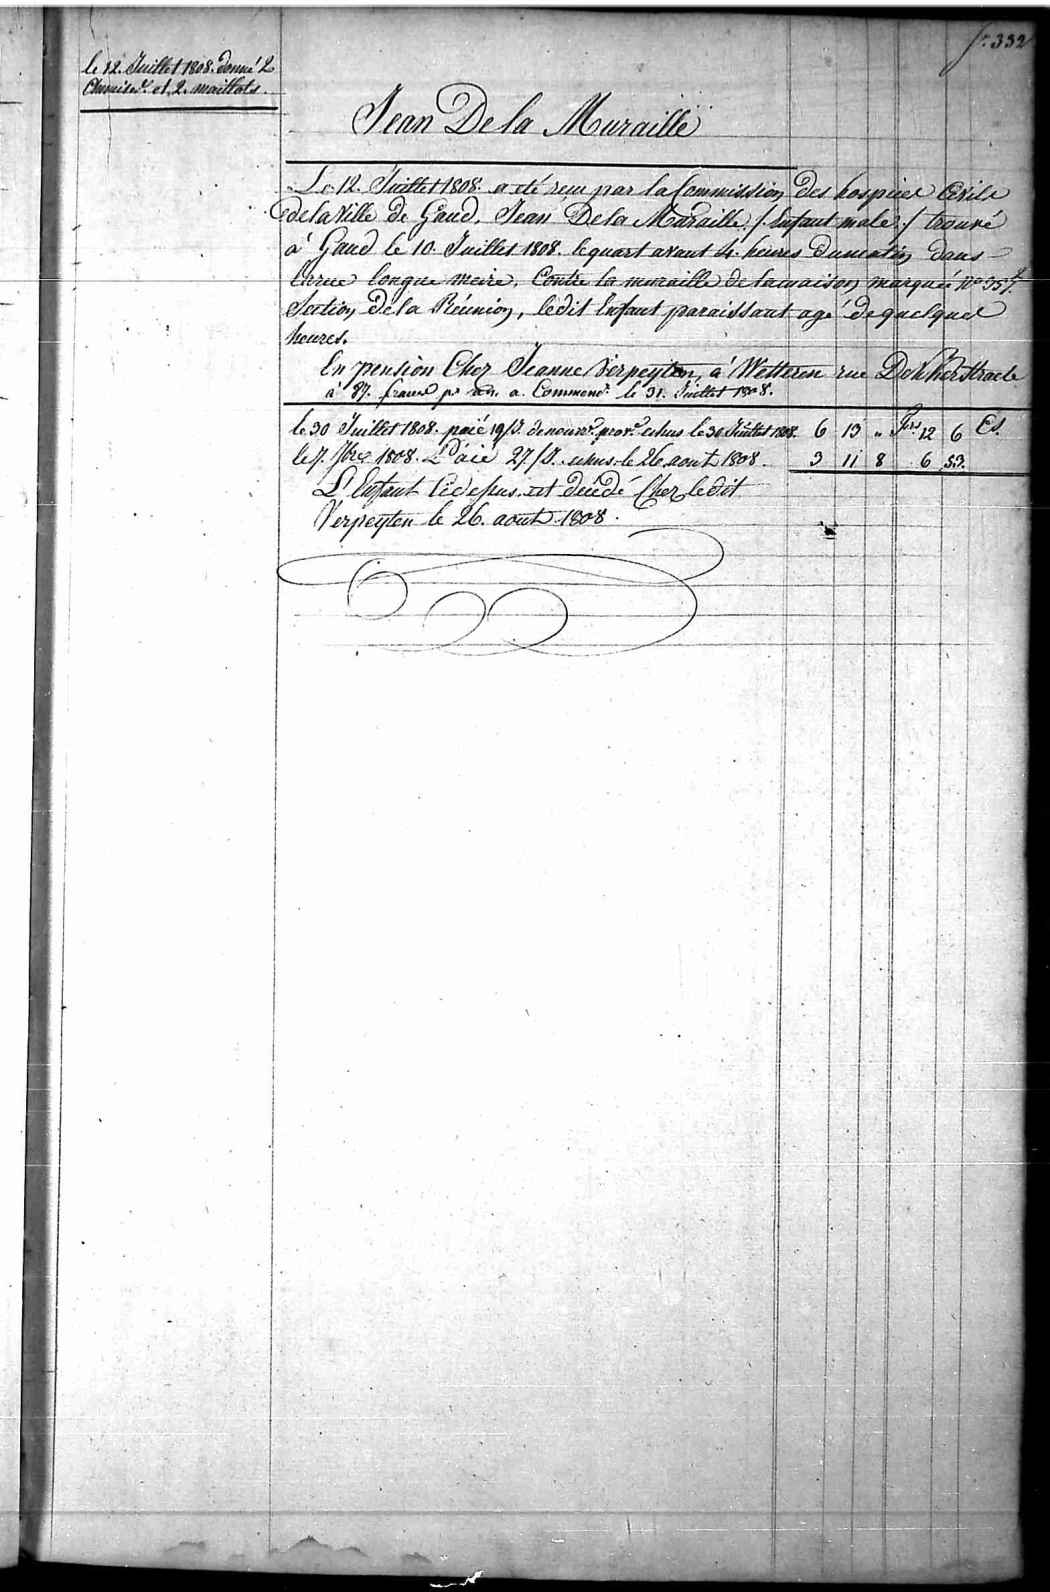 f° 332
le 12. Juillet 1808. donné 2
Chemises et 2. maillots.
Jean De la Muraille
Le 12. Juillet 1808. a été reçu par la Commission des hospices Civils
de la Ville de Gand, Jean De la Muraille /: Enfant male :/ trouvé
à Gand le 10. Juillet 1808. le quart avant 4. heures du matin dans
la rue longue meire, Contre la muraille de la maison marquée N°
Section de la Réunion, ledit Enfant paraissant agé de quelques
heures.
En pension Chez Jeanne Verpeyten, à Wetteren rue
à 87. francs pr an. a Commencr le 31. Juillet 1808.
le 30 Juillet 1808. paié 19/J. de nourre. prov.e echus le 30 Juillet 1808. 6 13 " frs 12 6 Cs.
le 7. 7bre 1808. Paié 27/J. echus le 26 aout 1808. 3 11 8 6 53.
L'Enfant Cidessus est decédé Chez ledit
Verpeyten le 26. aout 1808.